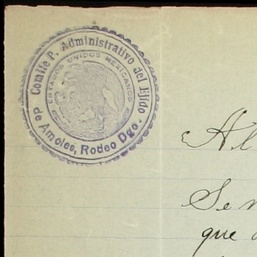 Comite P. Administrativo del Ejido
ESTADOS UNIDOS MEXICANOS
de Amoles, Rodeo Dgo.
Al
Se
que